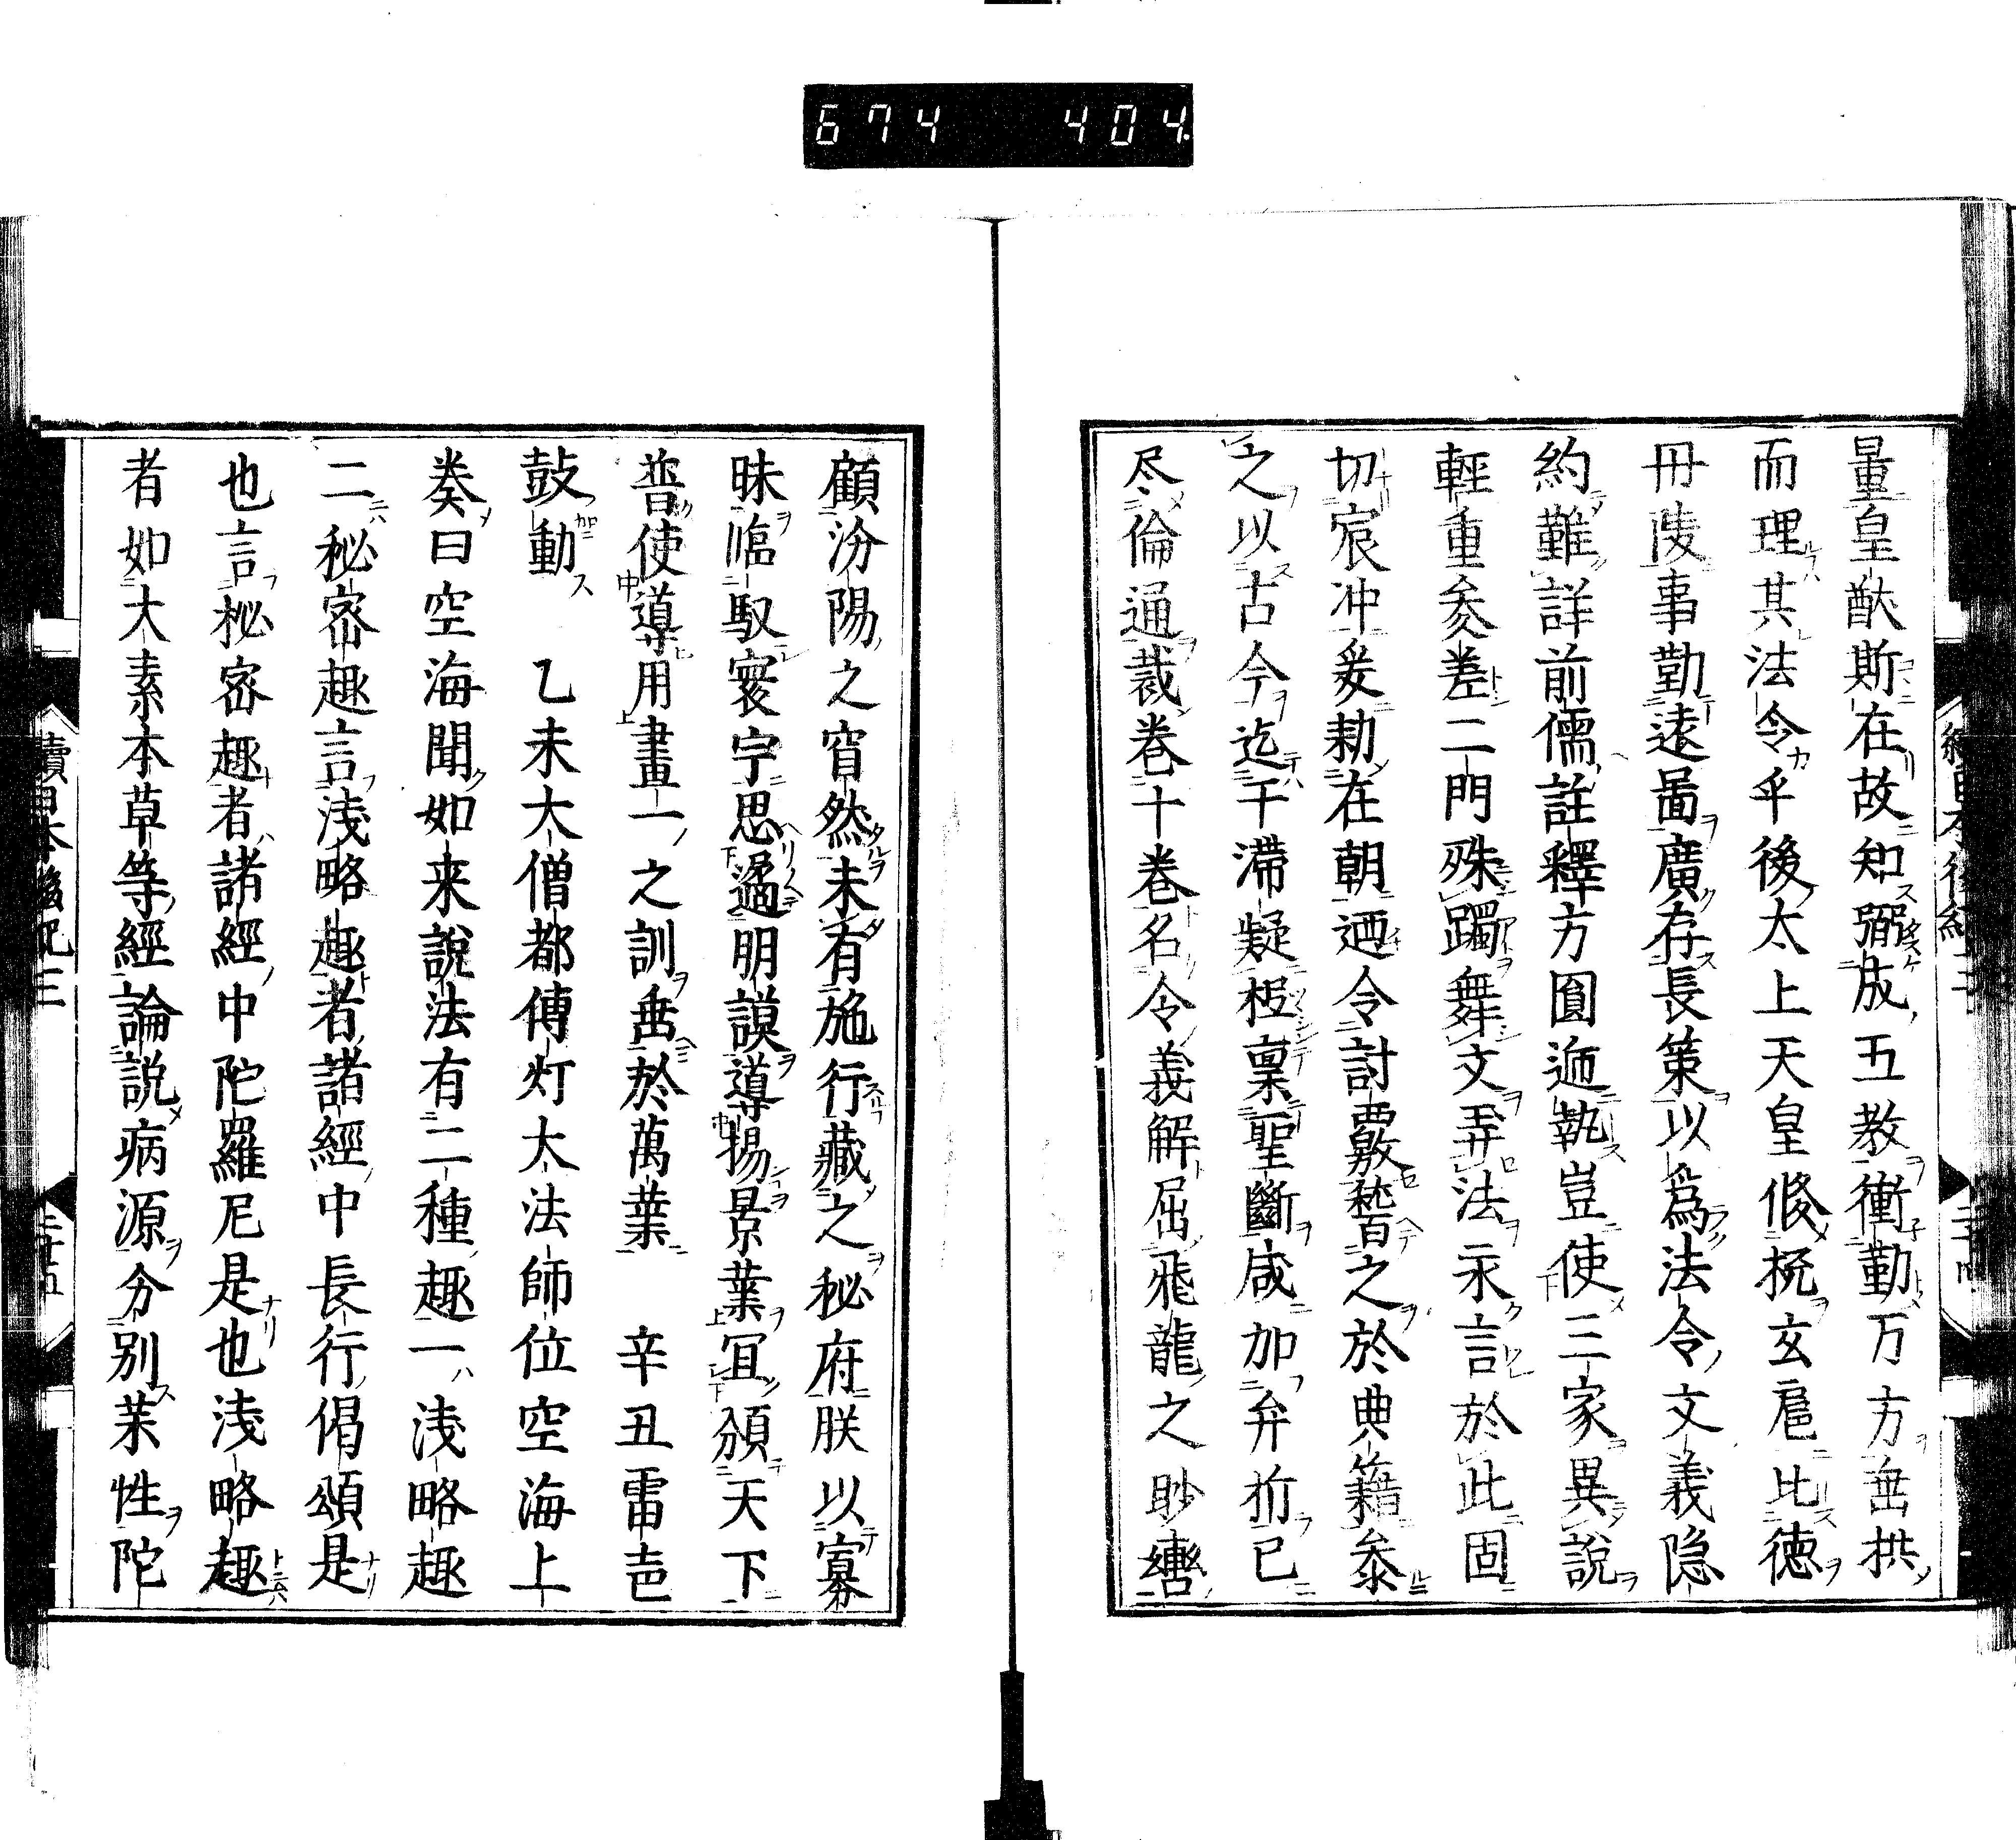 674 404
量皇猷斯在故知弼成五教衝勤万方垂拱
而理其法令乎後太上天皇倐梲玄扈比徳
丹陵事勤遠啚廣存長策以爲法令文義隐
約難詳前儒註釋方圎逓執豈使三家異說
輕重参差二門殊躅舞文弄法永言於此固
切宸冲爰勅在朝迺令討覈嵆之於典籍叅
之以古今迄于滞疑極稟聖斷咸加弁析已
尽倫通裁卷十卷名令義解屈飛龍之眇轡
顧汾陽之窅然未有施行藏之秘府朕以寡
昧臨馭寰宇思遹明謨導揚景葉冝頒天下
普使導用畫一之訓垂於萬葉　辛丑雷壱
鼓動　乙未大僧都傳灯大法師位空海上
奏曰空海聞如来說法有二種趣一浅略趣
二秘密趣言浅略趣者諸經中長行偈頌是
也言秘密趣者諸經中陀羅尼是也浅略趣
者如大素本草等經論説病源分別茱性陀
續日本後紀三
二十五